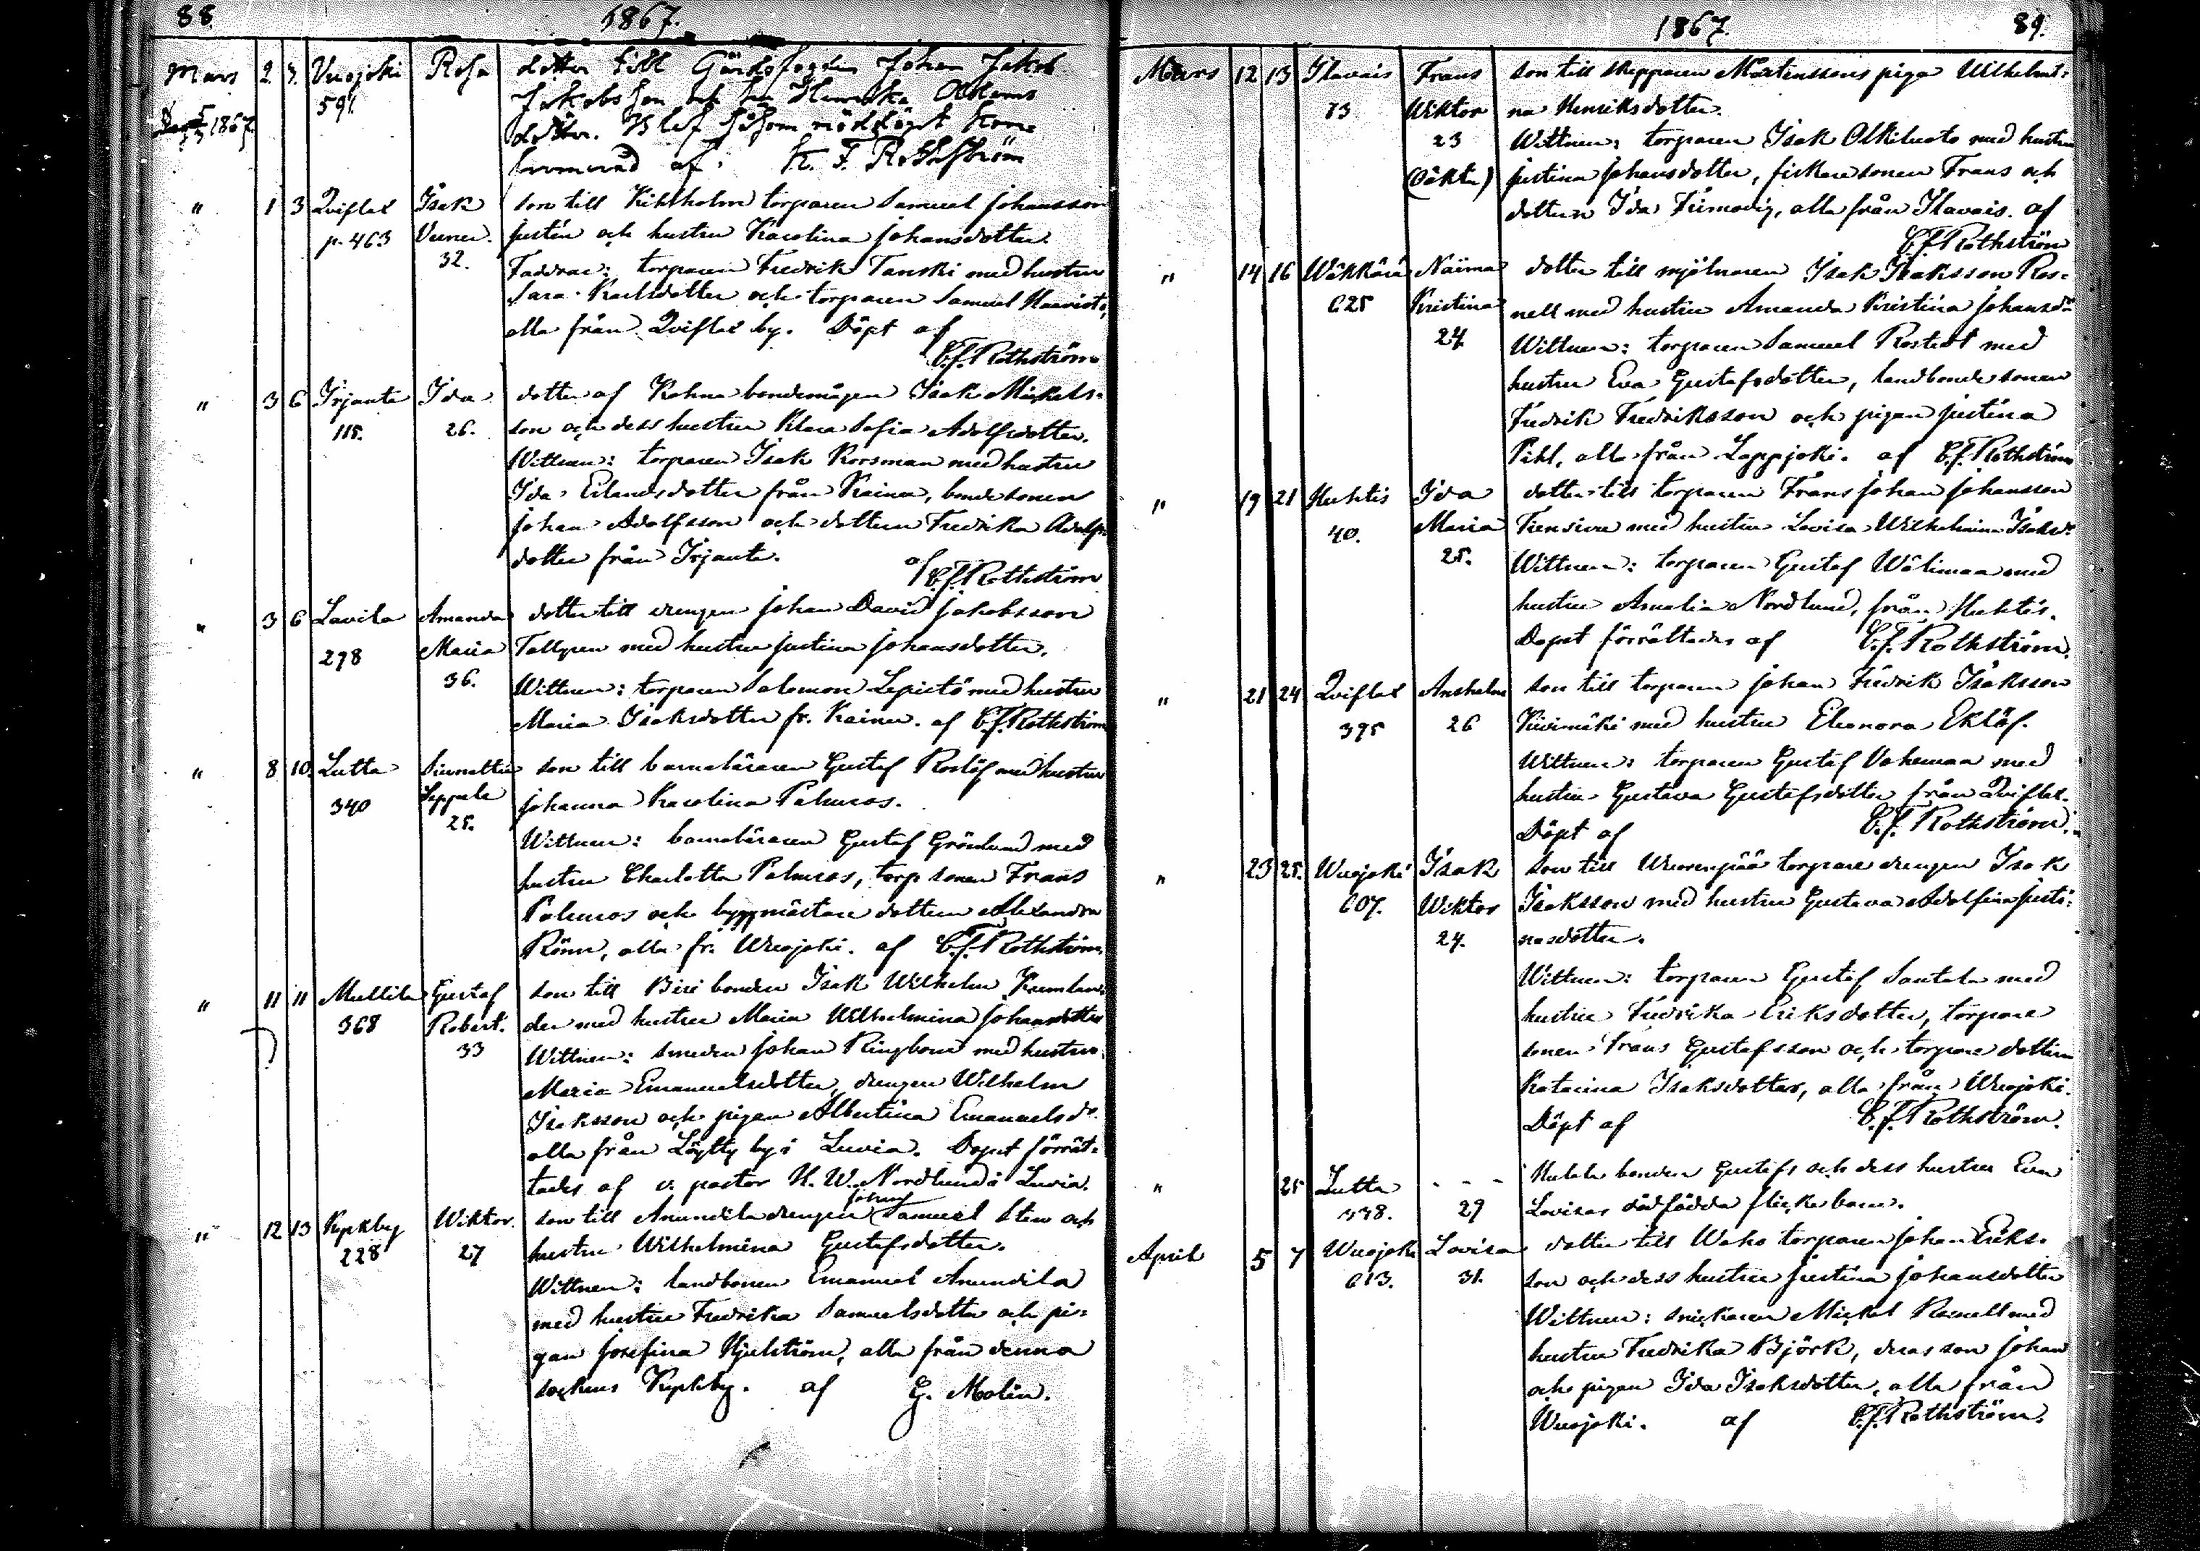 88. 1867.
Mars 2. 3. Vuojoki Rosa dotter till Gårdsfogden Johan Jakob
591. Jakobsson och h:u Henrika
1867 dotter. Blef såsom nöddöpt kon-
af: K. F. Rothström
" 1 3 Qviflax Isak son till Kihlholm torparen Samuel Johansson
p. 463 Verner. Justén och hustru Karolina Johansdotter.
32. Faddrar: torparen Fredrik Tanski med hustru
Sara Karlsdotter och torparen Samuel Haavisto,
alla från Qviflax by. Döpt af
C.f. Rothström
" 3 6 Irjanta Ida dotter af Kohna bondemågen Isak Mickels-
115. 26. son och dess hustru Klara Sofia Adolfsdotter.
Wittnen: torparen Isak Korsman med hustru
Ida Erlandsdotter från Kainu, bonde sonen
Johan Adolfsson och dottren Fredrika Adolfs
dotter från Irjanta. af C.f. Rothström
" 3 6 Lavila Amanda dotter till drengen Johan David Jakobsson
278 Maria Tallgren med hustru Justina Johansdotter.
36. Wittnen: torparen Salomon Lepistö med hustru
Maria Isaksdotter fr. Kainu. af C.f. Rothström
" 8 10. Lutta son till barnaläraren Gustaf Roslöf med hustru
340 Seppele Johanna Karolina Palmros.
25. Wittnen: barnaläraren Gustaf Grönlund med
hustru Charlotta Palmros, torp sonen Frans
Palmros och byggmästare dottren Alexandra
Rönn, alla fr. Wuojoki. af C.f. Rothström.
" 11 11 Mullila Gustaf son till Biri bonden Isak Wilhelm Kumlan-
368 Robert. der med hustru Maria Wilhelmina Johansdotter
33 Wittnen: smeden Johan Ringbom med hustru
Maria Emanuelsdotter, drengen Wilhelm
Isaksson och pigan Albertina Emanuelsdr
alla från Löytty by i Luvia. Dopet förrät-
tades af v. pastor K. W. Nordlund i Luvia.
" 12 13 Kyrkby Wiktor. son till Anundila drengen Johan Samuel Sten och
228 27 hustru Wilhelmina Gustafsdotter.
Wittnen: landbonen Emanuel Anundila
med hustru Fredrika Samuelsdotter och pi-
gan Josefina Hjelström, alla från denna
sockens Kyrkby. af G. Molin.
1867. 89.
Mars 12 13 Ilavais Frans son till skepparen Mårtenssons piga Wilhelmi-
73 Wiktor na Henriksdotter.
23 Wittnen: torparen Isak Olkiluoto med hustru
(Oäkta) Justina Johansdotter, fiskaresonen Frans och
dottren Ida Frimodig, alla från Ilavais. af
C.f. Rothström
" 14 16 Wäkkärä Naima dotter till mjölnaren Isak Isaksson Ros-
625 Kristina nell med hustru Amanda Kristina Johansdr
24 Wittnen: torparen Samuel Rostedt med
hustru Eva Gustafsdotter, landbonde sonen
Fredrik Fredriksson och pigan Justina
Pihl, alla från Lappjoki. af C.f. Rothström
" 19 21 Huhtis Ida dotter till torparen Frans Johan Johansson
40. Maria med hustru Lovisa Wilhelmina Isaksdr
25. Wittnen: torparen Gustaf Wälimaa med
hustru Amalia Nordlund, från Huhtis.
Dopet förrättades af C.f. Rothström.
" 21 24 Qviflax Anshelm son till torparen Johan Fredrik Isaksson
395 26 Kivimäki med hustru Eleonora Eklöf.
Wittnen: torparen Gustaf Vahemaa med
hustru Gustava Gustafsdotter från Qviflax.
Döpt af C.f. Rothström.
" 23 25. Wuojoki Isak son till Wuorenpää torpare drengen Isak
607. Wiktor Isaksson med hustru Gustava Adolfina Justi-
24. nasdotter.
Wittnen: torparen Gustaf Santala med
hustru Fredrika Eriksdotter, torpare
sonen Frans Gustafsson och torpare dottren
Katarina Isaksdotter, alla från Wuojoki.
Döpt af C.f. Rothström.
" 25 Lutta - - - bonden Gustafs och dess hustru Eva
338. 29 Lovisas dödfödda flickebarn.
April 5 7 Wuojoki Lovisa dotter till Waho torparen Johan Eriks-
613. 31. son och dess hustru Justina Johansdotter
Wittnen: snickaren Mickel Ramell med
hustru Fredrika Björk, deras son Johan
och pigan Ida Isaksdotter, alla från
Wuojoki. af C.f. Rothström.